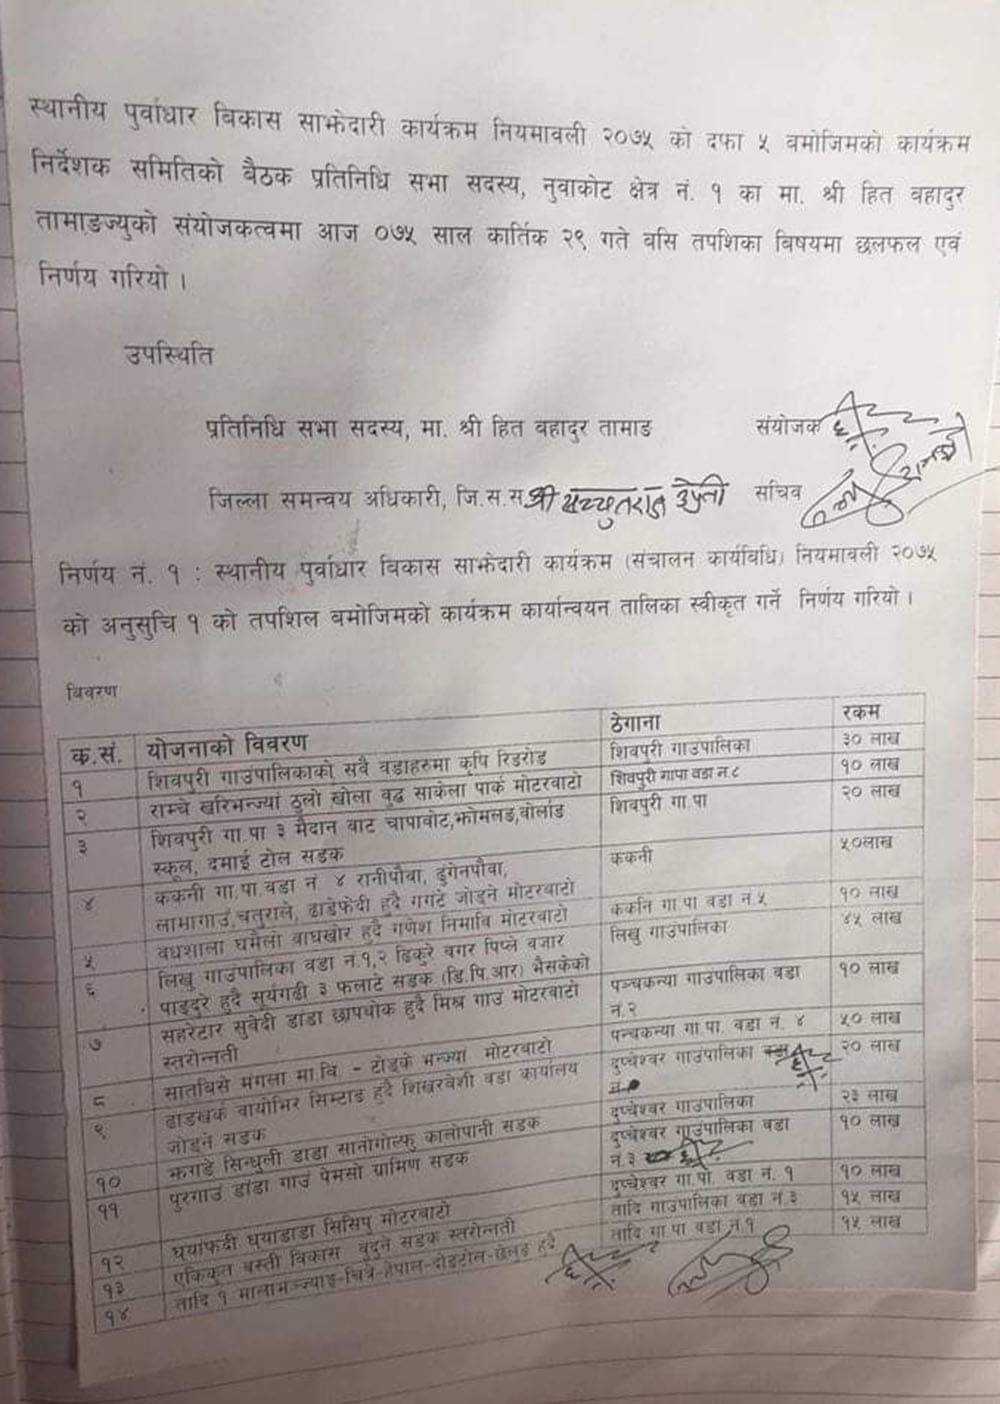 स्थानीय पुर्वाधार बिकास साझेदारी कार्यक्रम नियमावली २०७५ को दफा ५ बमोजिमको कार्यक्रम
निर्देशक समितिको बैठक प्रतिनिधि सभा सदस्य, नुवाकोट क्षेत्र नं. १ का मा. श्री हित वहादुर
तामाङज्युको संयोजकत्वमा आज ०७५ साल कार्तिक २९ गते बसि तपशिका बिषयमा छलफल एवं
निर्णय गरियो ।
उपस्थिति
प्रतिनिधि सभा सदस्य, मा. श्री हित वहादुर तामाङ संयोजक
जिल्ला समन्वय अधिकारी, जि.स.स. श्री अच्युतराज उप्रेती सचिव
निर्णय नं. १ : स्थानीय पुर्वाधार बिकास साझेदारी कार्यक्रम (संचालन कार्यबिधि) नियमावली २०७५
को अनुसुचि १ को तपशिल बमोजिमको कार्यक्रम कार्यान्वयन तालिका स्वीकृत गर्ने निर्णय गरियो ।
बिवरण
क.सं. योजनाको विवरण ठेगाना रकम
१ शिवपुरी गाउंपालिकाको सवै वडाहरुमा कृषि रिडरोड शिवपुरी गाउंपालिका ३० लाख
२ राम्चे खरिभन्ज्यां ठुलो खोला वुद्ध साकेला पार्क मोटरबाटो शिवपुरी गापा वडा न.८ १० लाख
३ शिवपुरी गा.पा ३ मैदान बाट चापाबोट,झोमलड,वोर्लाड शिवपुरी गा.पा २० लाख
स्कूल, दमाई टोल सडक
४ ककनी गा.पा.वडा नं ४ रानीपौवा, ढुंगेनपौवा, ककनी ५०लाख
लामागाउं,चतुराले, ढाडेफेदी हुदै गगटे जोड्ने मोटरबाटो
५ वधशाला घमैलो बाघखोर हुदै गणेश निमावि मोटरबाटो ककनि गा.पा वडा न.५ १० लाख
६ लिखु गाउंपालिका वडा नं.१,२ ढिकुरे बगर पिप्ले बजार लिखु गाउंपालिका ४५ लाख
पाडदुरे हुदै सुर्यगढी ३ फलाटे सडक (डि.पि.आर) भैसकेको
७ सहरेटार सुवेदी डांडा छापथोक हुदै मिश्र गाउं मोटरबाटो पञ्चकन्या गाउंपालिका वडा १० लाख
स्तरोन्नती न.२
८ सातबिसे मंगला मा.वि. - टोड्के भन्ज्या मोटरबाटो पन्चकन्या गा.पा. वडा नं. ४ ५० लाख
९ ढाडखर्क वायोभिर सिम्टाड हुदै शिखरबेशी वडा कार्यालय दुप्चेश्वर गाउंपालिका वडा २० लाख
जोड्ने सडक न.
१० झगडे सिन्धुली डाडा सानोगोल्फु कालोपानी सडक दुप्चेश्वर गाउंपालिका २३ लाख
११ पुरगाउं डांडा गाउं पेमसो ग्रामिण सडक दुप्चेश्वर गाउंपालिका वडा १० लाख
न.३
१२ घ्याफदी घ्याडाडा सिसिपु मोटरबाटो दुप्चेश्वर गा.पा. वडा नं. १ १० लाख
१३ एकिकृत बस्ती विकास वुदुने सडक स्तरोन्नती तादि गाउपालिका वडा नं.३ १५ लाख
१४ तादि १ मालाभञ्ज्याड-चित्रे-हेपाल-दोड्टोल-छेलुड हुदै तादि गा.पा वडा नं.१ १५ लाख